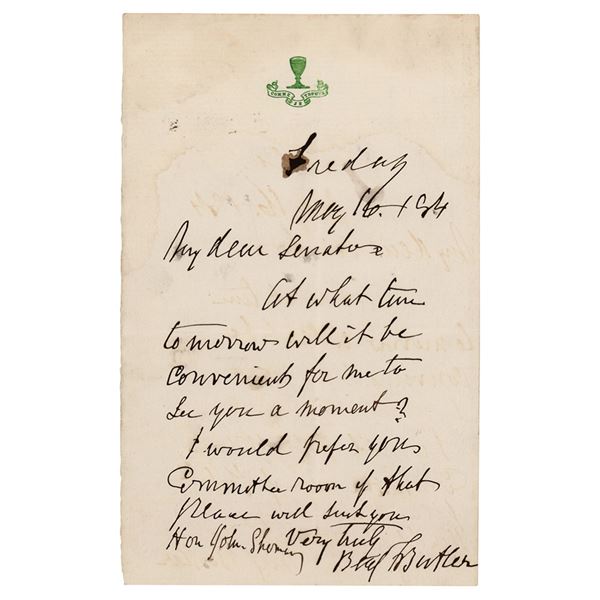 COMME JE TROUVE
Friday
May 16. 184
My dear Senator
At what time
tomorrow will it be
convenient for me to
see you a moment?
I would prefer your
Committee room if that
place will suit you
Very truly
Hon John Sherman
Benj F Butler